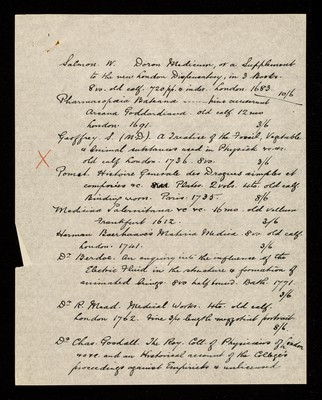 Salmon. W. Doron Medicum, or a Supplement
to the new London Dispensatory, in 3 Books.
8vo. old calf. 720 pp. & index. London. 1683.
10/6
Pharmacopœia Bateana ......
Arcana Goddardiana. old calf. 12mo
London. 1691. 3/6
Geoffroy. S. (M.D). A Treatise of the Fossil, Vegetable
& Animal substances used in Physick &c. &c.
old calf. London. 1736. 8vo. 3/6
X
Pomet. Histoire Generale des Drogues simples et
composées &c. Plates. 2 vols. 4to. old calf.
Binding worn. Paris. 1735. 8/6
Medicina Salernitana &c &c. 16mo. old vellum
Frankfurt 1612. 3/6
Herman Boerhaave's Materia Medica. 8vo. old calf.
London. 1741. 3/6
Dr Berdoe. An enquiry into the influence of the
Electric Fluid in the structure & formation of
animated beings. 8vo half bound. Bath. 1771.
3/6
Dr R. Mead. Medical Works. 4to. old calf.
London 1762. Fine 3/4 length mezzotint portrait
8/6.
Dr Chas. Goodall. The Roy. Coll. of Physicians of London
&c &c. and an Historical account of the College's
proceedings against Empiricks & unlicensed